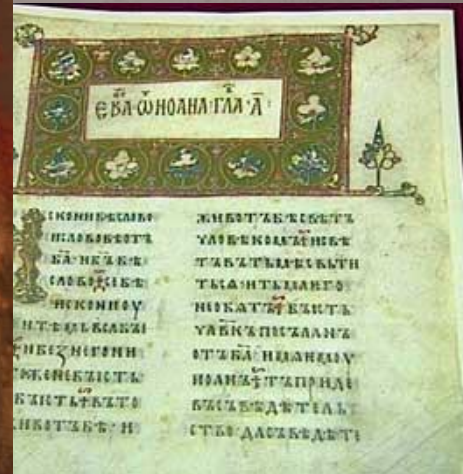 ЕВⷢ҇А·Ѿ ИОАНА·ГЛⷡ҇А·А҃·
ИСКОНИБѢСЛОВО
ИСЛОВОБѢОТЪ
Б҃А·ИБ҃ЪБѢ
СЛОВО·СЕБѢ
ИСКОНИОУ
ИТѢМЬВЬСꙖБЫ
ИБЕЗНЕГОНИ
ТОЖЕНЕБЫСТЬ
БЫСТЬ·ВЪТО
ЖИВОТЪБѢ·И
ЖИВОТЪБѢСВѢТЪ
ЧЛОВѢКОМЪ·ИСВѢ
ТЪВЪТЬМѢСВЬТИ
ТЬСѦ·ИТЬМАѤГО
НЕОБѦТЪ·БЫСТЬ
ЧЛ҃ВКЪПОСЪЛАНЪ
ОТЪБ҃А·ИМѦѤМОУ
ИОАНЪ·ТЪПРИДЕ
ВЪСЪВѢДѢТЕЛЬ
СТВО·ДАСЪВѢДѢТЕ